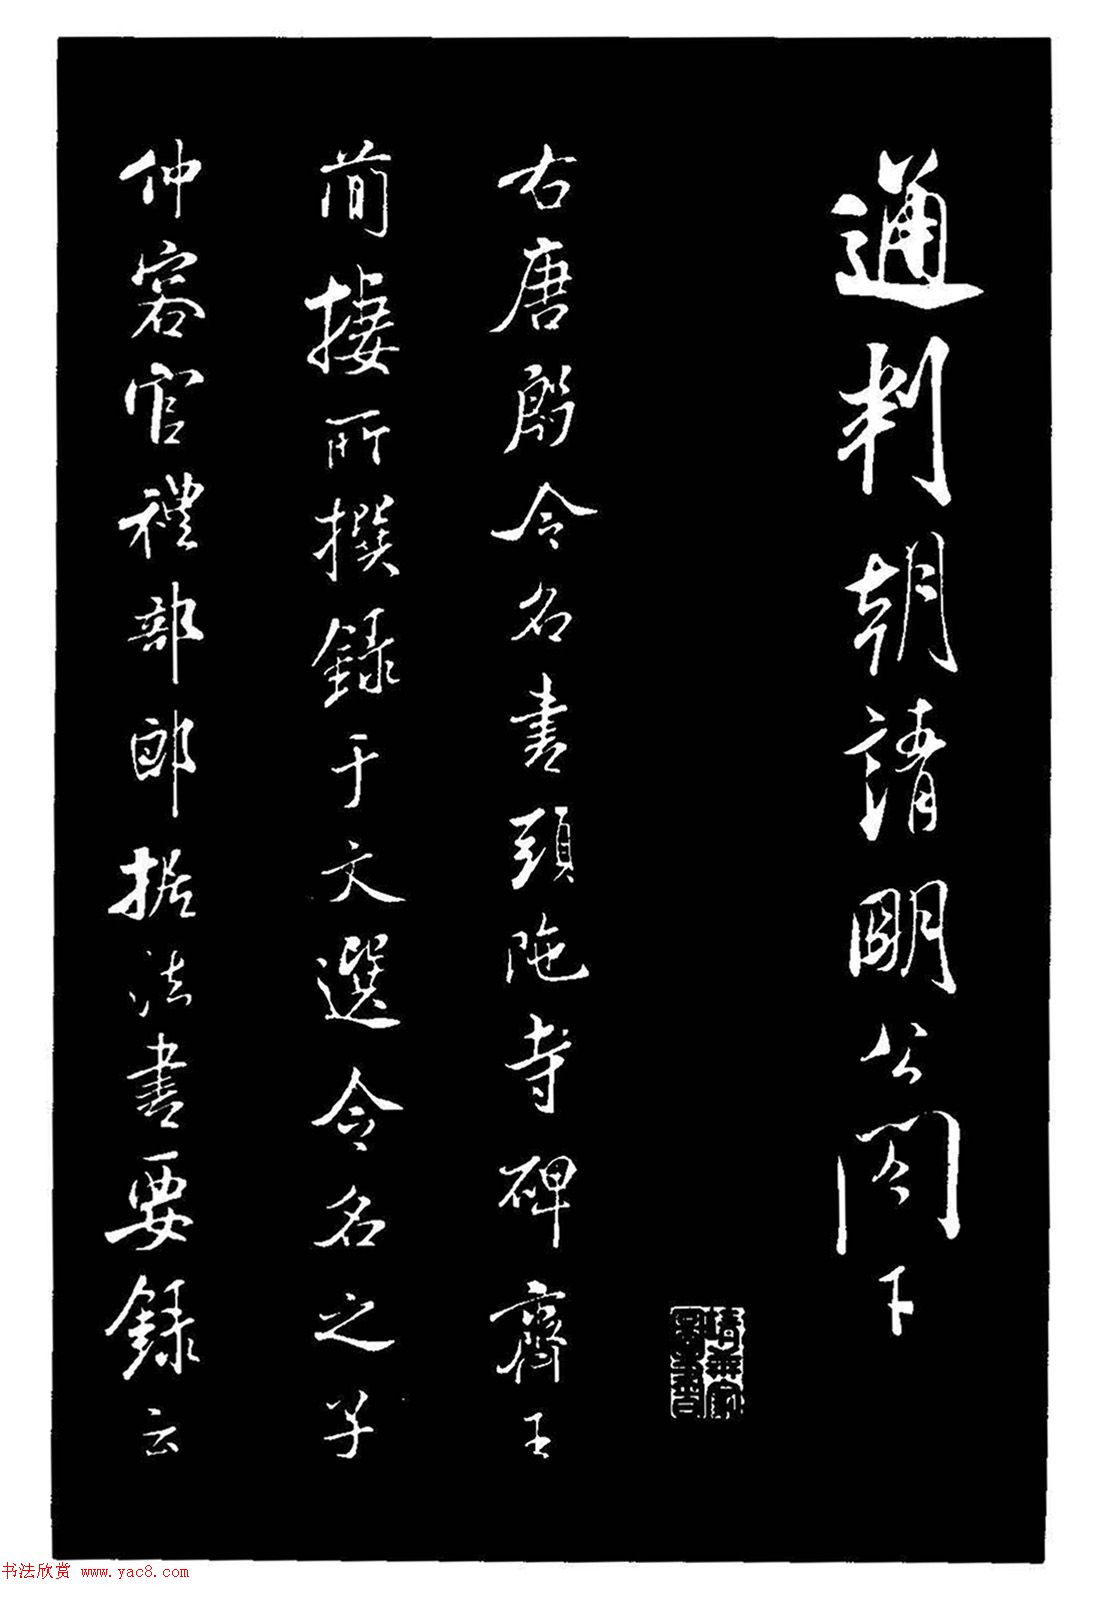 通判朝請明公閣下
右唐殷令名書頭陁寺碑齊王
蕳棲所撰録于文選令名之子
仲容官禮部郎据法書要録云
书法欣赏 www.yac8.com